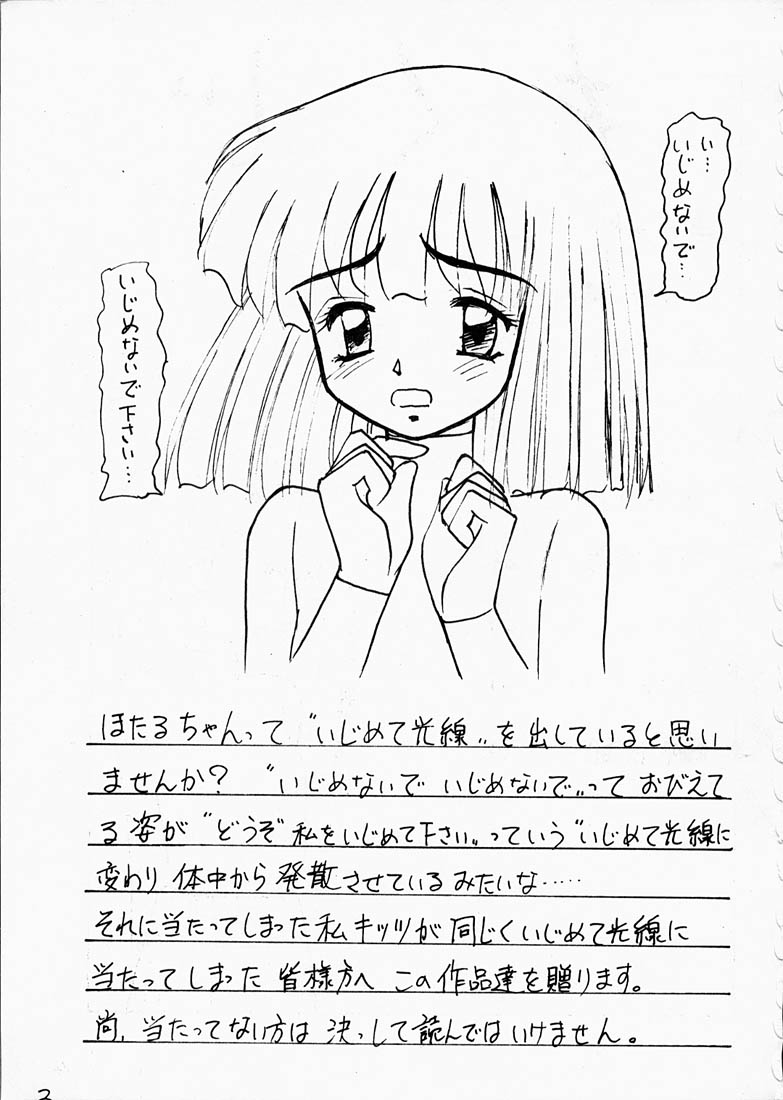 い…
いじめないで…
いじめないで下さい…
ほたるちゃんって〝いじめて光線〟を出していると思い
ませんか？〝いじめないで いじめないで〟って おびえて
る姿が〝どうぞ〝私をいじめて下さい〟っていう〝いじめて光線に
変わり 体中から 発散させているみたいな……
それに当たってしまった私キッツが 同じくいじめて光線に
当たってしまった 皆様方へ この作品達を贈ります。
尚, 当たってない方は 決っして読んではいけません。
2